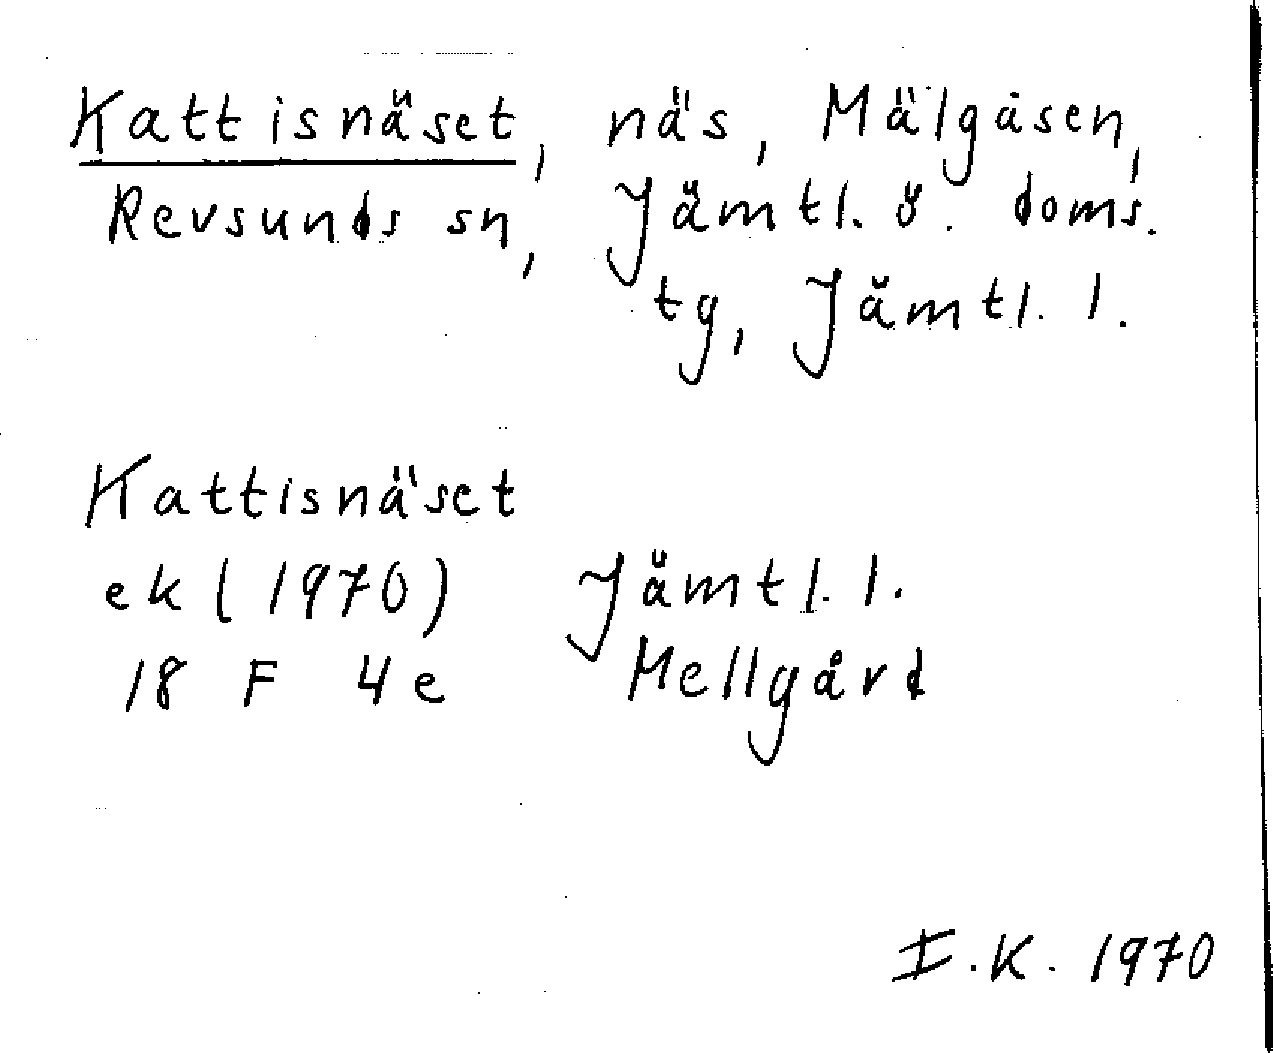 Kattisnäset, näs, Mälgåsen,
Revsunds sn, Jämtl. ö. doms.
tg, Jämtl. l.
Kattisnäset
ek (1970) Jämtl. l.
18 F 4e Mellgård
I.K. 1970